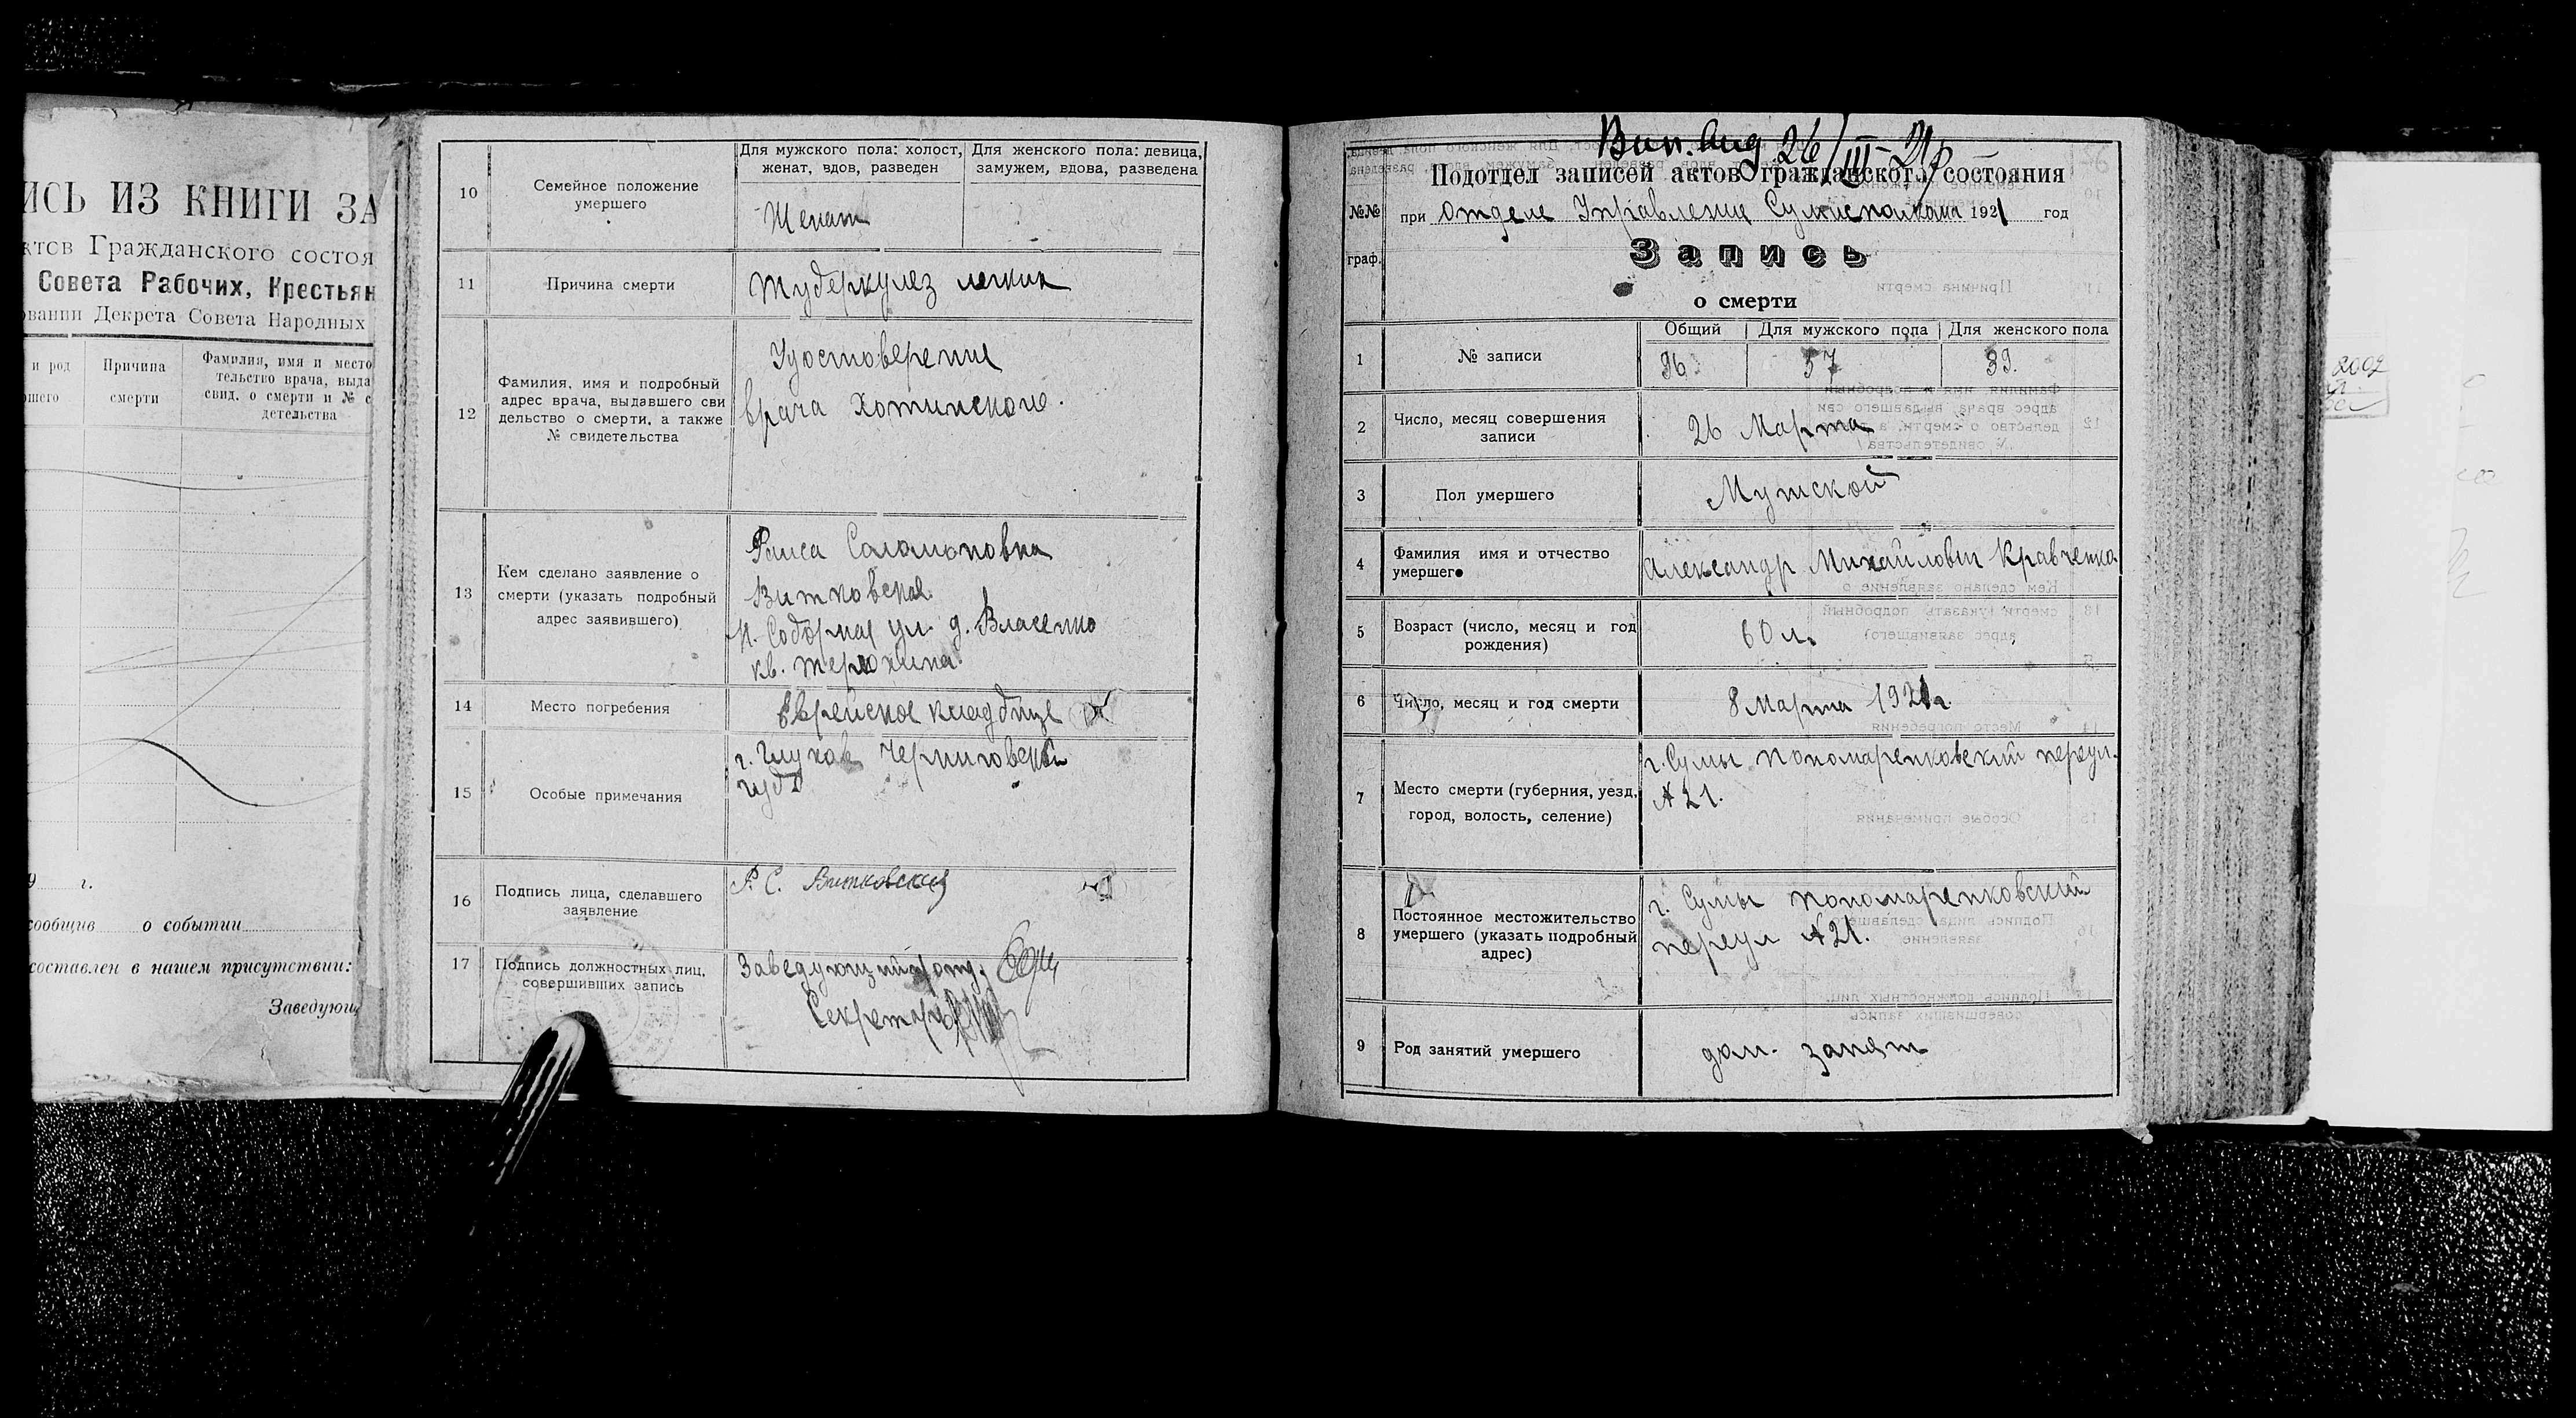 ИСЬ ИЗ КНИГИ ЗА
ктов Гражданского состоя
Совета Рабочих, Крестьян
овании Декрета Совета Народных
и род
Причина
смерти
Фамилия, имя и место
тельство врача, выда
свид. о смерти и № с
детельства
г.
сообщив о событии
составлен в нашем присутствии:
Заведующ
10
Семейное положение
умершего
Для мужского пола: холост,
женат, вдов, разведен
Для женского пола: девица,
замужем, вдова, разведена
Женат
11
Причина смерти
Туберкулез легких
12
Фамилия, имя и подробный
адрес врача, выдавшего сви
дельство о смерти, а также
№ свидетельства
Удостоверение
врача Хотинского.
13
Кем сделано заявление о
смерти (указать подробный
адрес заявившего)
Раиса Соломоновна
Витковская
Н. Соборная ул. д. Власенко
кв.
14
Место погребения
Еврейское кладбище
15
Особые примечания
г. Глухов Черниговской
губ
16
Подпись лица, сделавшего
заявление
Р. С. Витковская
17
Подпись должностных лиц,
совершивших запись
Заведующий п/отд.
Секретарь
26/III-21
Подотдел записей актов гражданского состояния
№№
граф.
при Отделе Управления Сумисполкома 1921 год
Запись
о смерти
1
№ записи
Общий
Для мужского пола
Для женского пола
96
57
39.
2
Число, месяц совершения
записи
26 Марта
3
Пол умершего
Мужской
4
Фамилия имя и отчество
умершего
Александр Михайлович Кравченко
5
Возраст (число, месяц и год
рождения)
60 л.
6
Число, месяц и год смерти
8 Марта 1921 г.
7
Место смерти (губерния, уезд,
город, волость, селение)
г. Сумы Пономаренковский переул.
№ 21.
8
Постоянное местожительство
умершего (указать подробный
адрес)
г. Сумы Пономаренковский
переул №21.
9
Род занятий умершего
дом. занят
2002